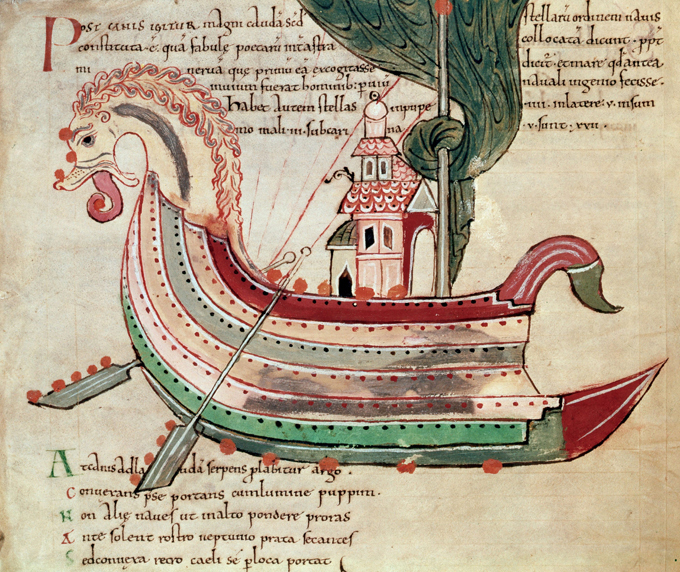 Post canis igitur magni caudā sed stellarū ordinem navis
constituta · ē · quā fabulę poetarū int astra collocatā dicunt · ppt
mi nervā que primū eā excogitasse dicer & mare qd antea
invium fuerat hominib; pviū navali ingenio fecisse ·
Habet autem stellas in puppe ·iiii· in latere · v · in sum
mo mali · iii · sub cari na · v · sunt : xxii ·
At canis ad caudā serpens plabitur argo ·
Conversam pse portans cum lumine puppim ·
Non alię naves ut in alto pondere proras
Ante solent rostro neptunio prata secantes
Sed convexa retro caeli se p loca portat